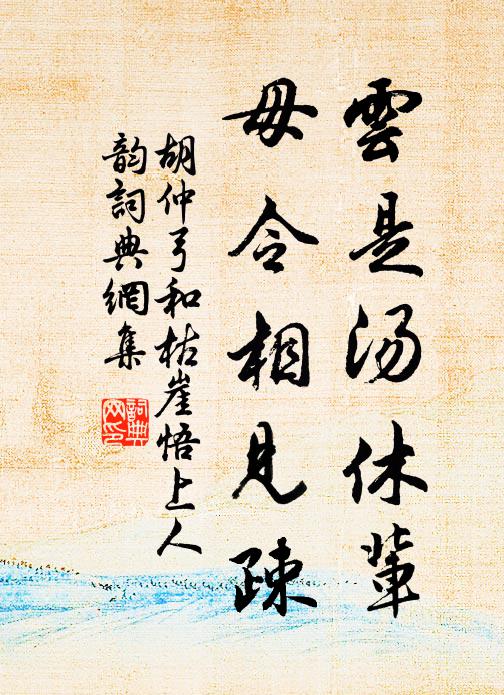 雲是湯休輩
毋令相見疎
胡仲弓和枯崖悟上人
韵詞典網集
詞典網印